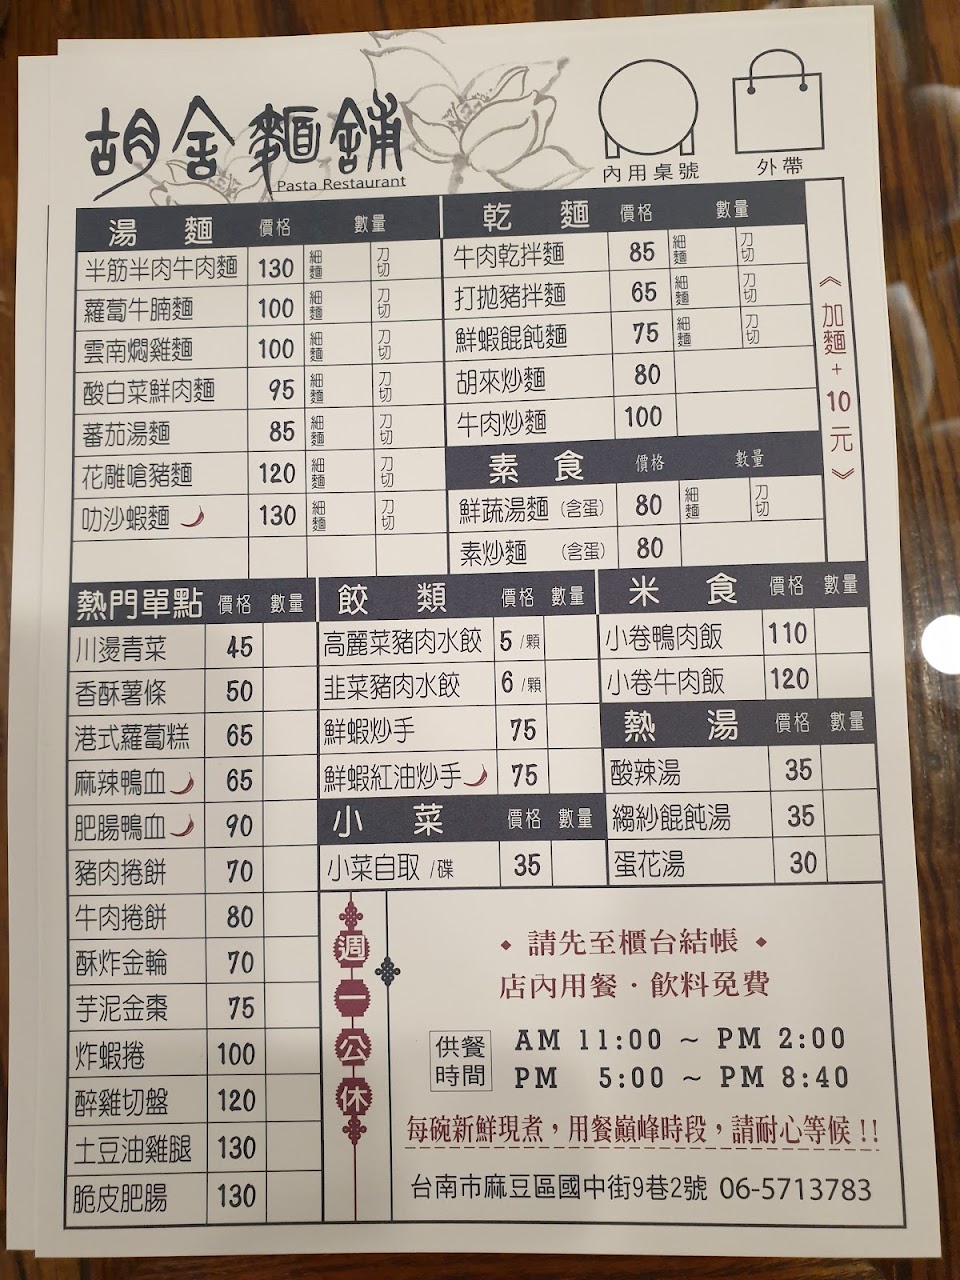 胡舍麵舖
Pasta Restaurant
內用桌號
外帶
湯 麵 價格 數量
半筋半肉牛肉麵 130 細麵 刀切
蘿蔔牛腩麵 100 細麵 刀切
雲南燜雞麵 100 細麵 刀切
酸白菜鮮肉麵 95 細麵 刀切
蕃茄湯麵 85 細麵 刀切
花雕嗆豬麵 120 細麵 刀切
叻沙蝦麵 130 細麵 刀切
乾 麵 價格 數量
牛肉乾拌麵 85 細麵 刀切
打拋豬拌麵 65 細麵 刀切
鮮蝦餛飩麵 75 細麵 刀切
胡來炒麵 80
牛肉炒麵 100
素 食 價格 數量
鮮蔬湯麵 (含蛋) 80 細麵 刀切
素炒麵 (含蛋) 80
《加麵+10元》
熱門單點 價格 數量
川燙青菜 45
香酥薯條 50
港式蘿蔔糕 65
麻辣鴨血 65
肥腸鴨血 90
豬肉捲餅 70
牛肉捲餅 80
酥炸金輪 70
芋泥金棗 75
炸蝦捲 100
醉雞切盤 120
土豆油雞腿 130
脆皮肥腸 130
餃 類 價格 數量
高麗菜豬肉水餃 5 /顆
韭菜豬肉水餃 6 /顆
鮮蝦炒手 75
鮮蝦紅油炒手 75
小 菜 價格 數量
小菜自取 /碟 35
米 食 價格 數量
小卷鴨肉飯 110
小卷牛肉飯 120
熱 湯 價格 數量
酸辣湯 35
縐紗餛飩湯 35
蛋花湯 30
週一公休
◆ 請先至櫃台結帳 ◆
店內用餐·飲料免費
供餐時間
AM 11:00 ~ PM 2:00
PM 5:00 ~ PM 8:40
每碗新鮮現煮，用餐巔峰時段，請耐心等候!!
台南市麻豆區國中街9巷2號 06-5713783